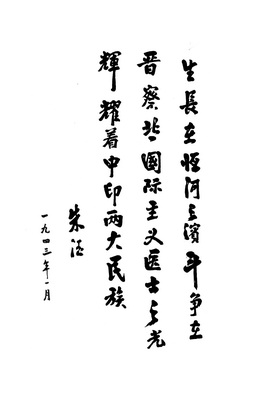 生長在恒河之濱斗争在
晋察北国际主义医士之光
輝耀着中印两大民族
朱德
一九四三年一月